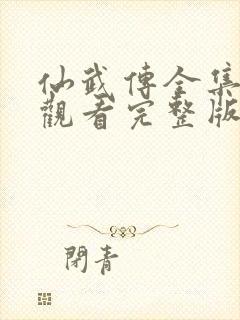 仙武傳全集
觀看完整版
閉青